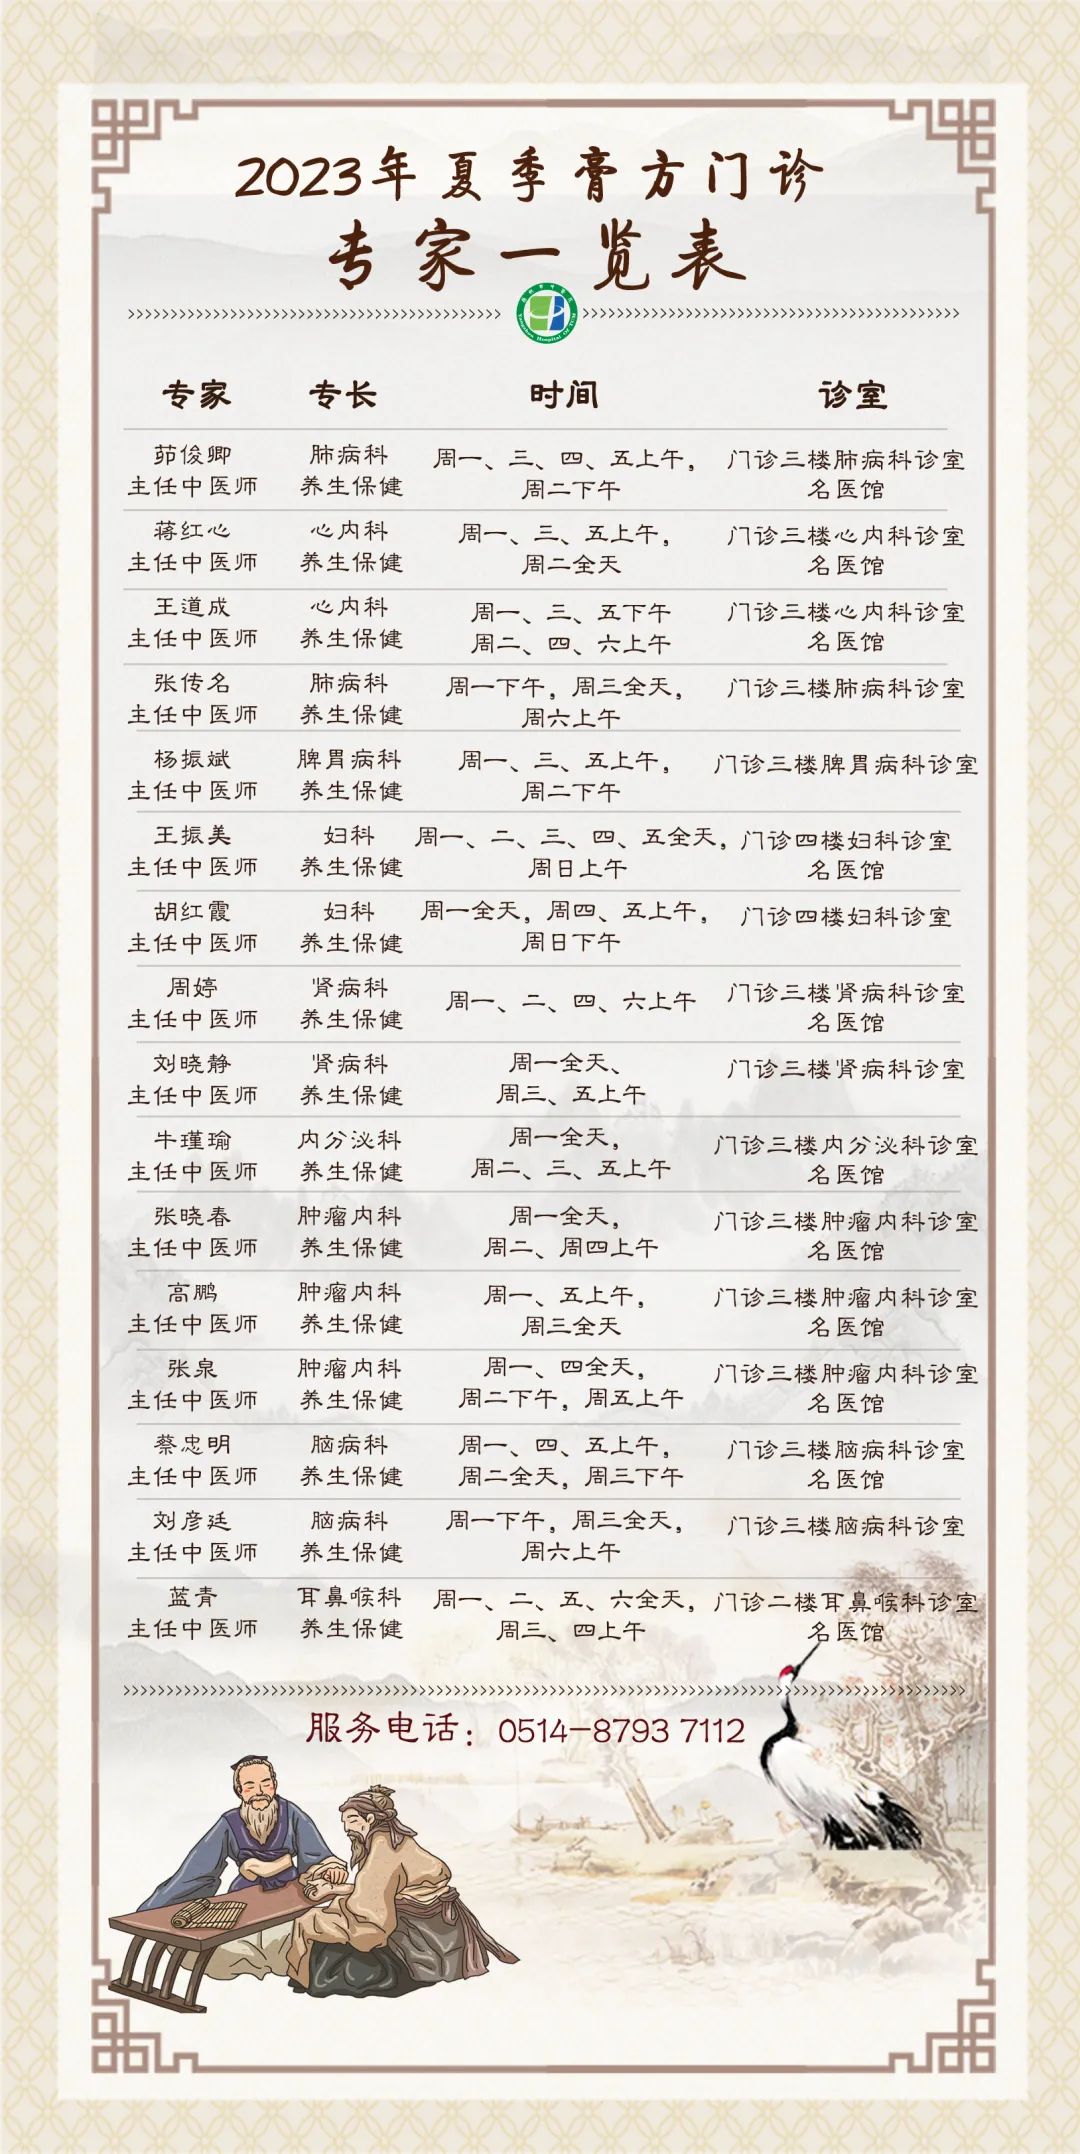 2023年夏季膏方门诊
专家一览表
专家 专长 时间 诊室
茆俊卿 肺病科 周一、三、四、五上午， 门诊三楼肺病科诊室
主任中医师 养生保健 周二下午 名医馆
蒋红心 心内科 周一、三、五上午， 门诊三楼心内科诊室
主任中医师 养生保健 周二全天 名医馆
王道成 心内科 周一、三、五下午 门诊三楼心内科诊室
主任中医师 养生保健 周二、四、六上午 名医馆
张传名 肺病科 周一下午，周三全天， 门诊三楼肺病科诊室
主任中医师 养生保健 周六上午
杨振斌 脾胃病科 周一、三、五上午， 门诊三楼脾胃病科诊室
主任中医师 养生保健 周二下午
王振美 妇科 周一、二、三、四、五全天， 门诊四楼妇科诊室
主任中医师 养生保健 周日上午 名医馆
胡红霞 妇科 周一全天，周四、五上午， 门诊四楼妇科诊室
主任中医师 养生保健 周日下午
周婷 肾病科 周一、二、四、六上午 门诊三楼肾病科诊室
主任中医师 养生保健 名医馆
刘晓静 肾病科 周一全天、 门诊三楼肾病科诊室
主任中医师 养生保健 周三、五上午
牛瑾瑜 内分泌科 周一全天， 门诊三楼内分泌科诊室
主任中医师 养生保健 周二、三、五上午 名医馆
张晓春 肿瘤内科 周一全天， 门诊三楼肿瘤内科诊室
主任中医师 养生保健 周二、周四上午 名医馆
高鹏 肿瘤内科 周一、五上午， 门诊三楼肿瘤内科诊室
主任中医师 养生保健 周三全天 名医馆
张泉 肿瘤内科 周一、四全天， 门诊三楼肿瘤内科诊室
主任中医师 养生保健 周二下午，周五上午 名医馆
蔡忠明 脑病科 周一、四、五上午， 门诊三楼脑病科诊室
主任中医师 养生保健 周二全天，周三下午 名医馆
刘彦廷 脑病科 周一下午，周三全天， 门诊三楼脑病科诊室
主任中医师 养生保健 周六上午
蓝青 耳鼻喉科 周一、二、五、六全天， 门诊二楼耳鼻喉科诊室
主任中医师 养生保健 周三、四上午 名医馆
服务电话：0514-8793 7112